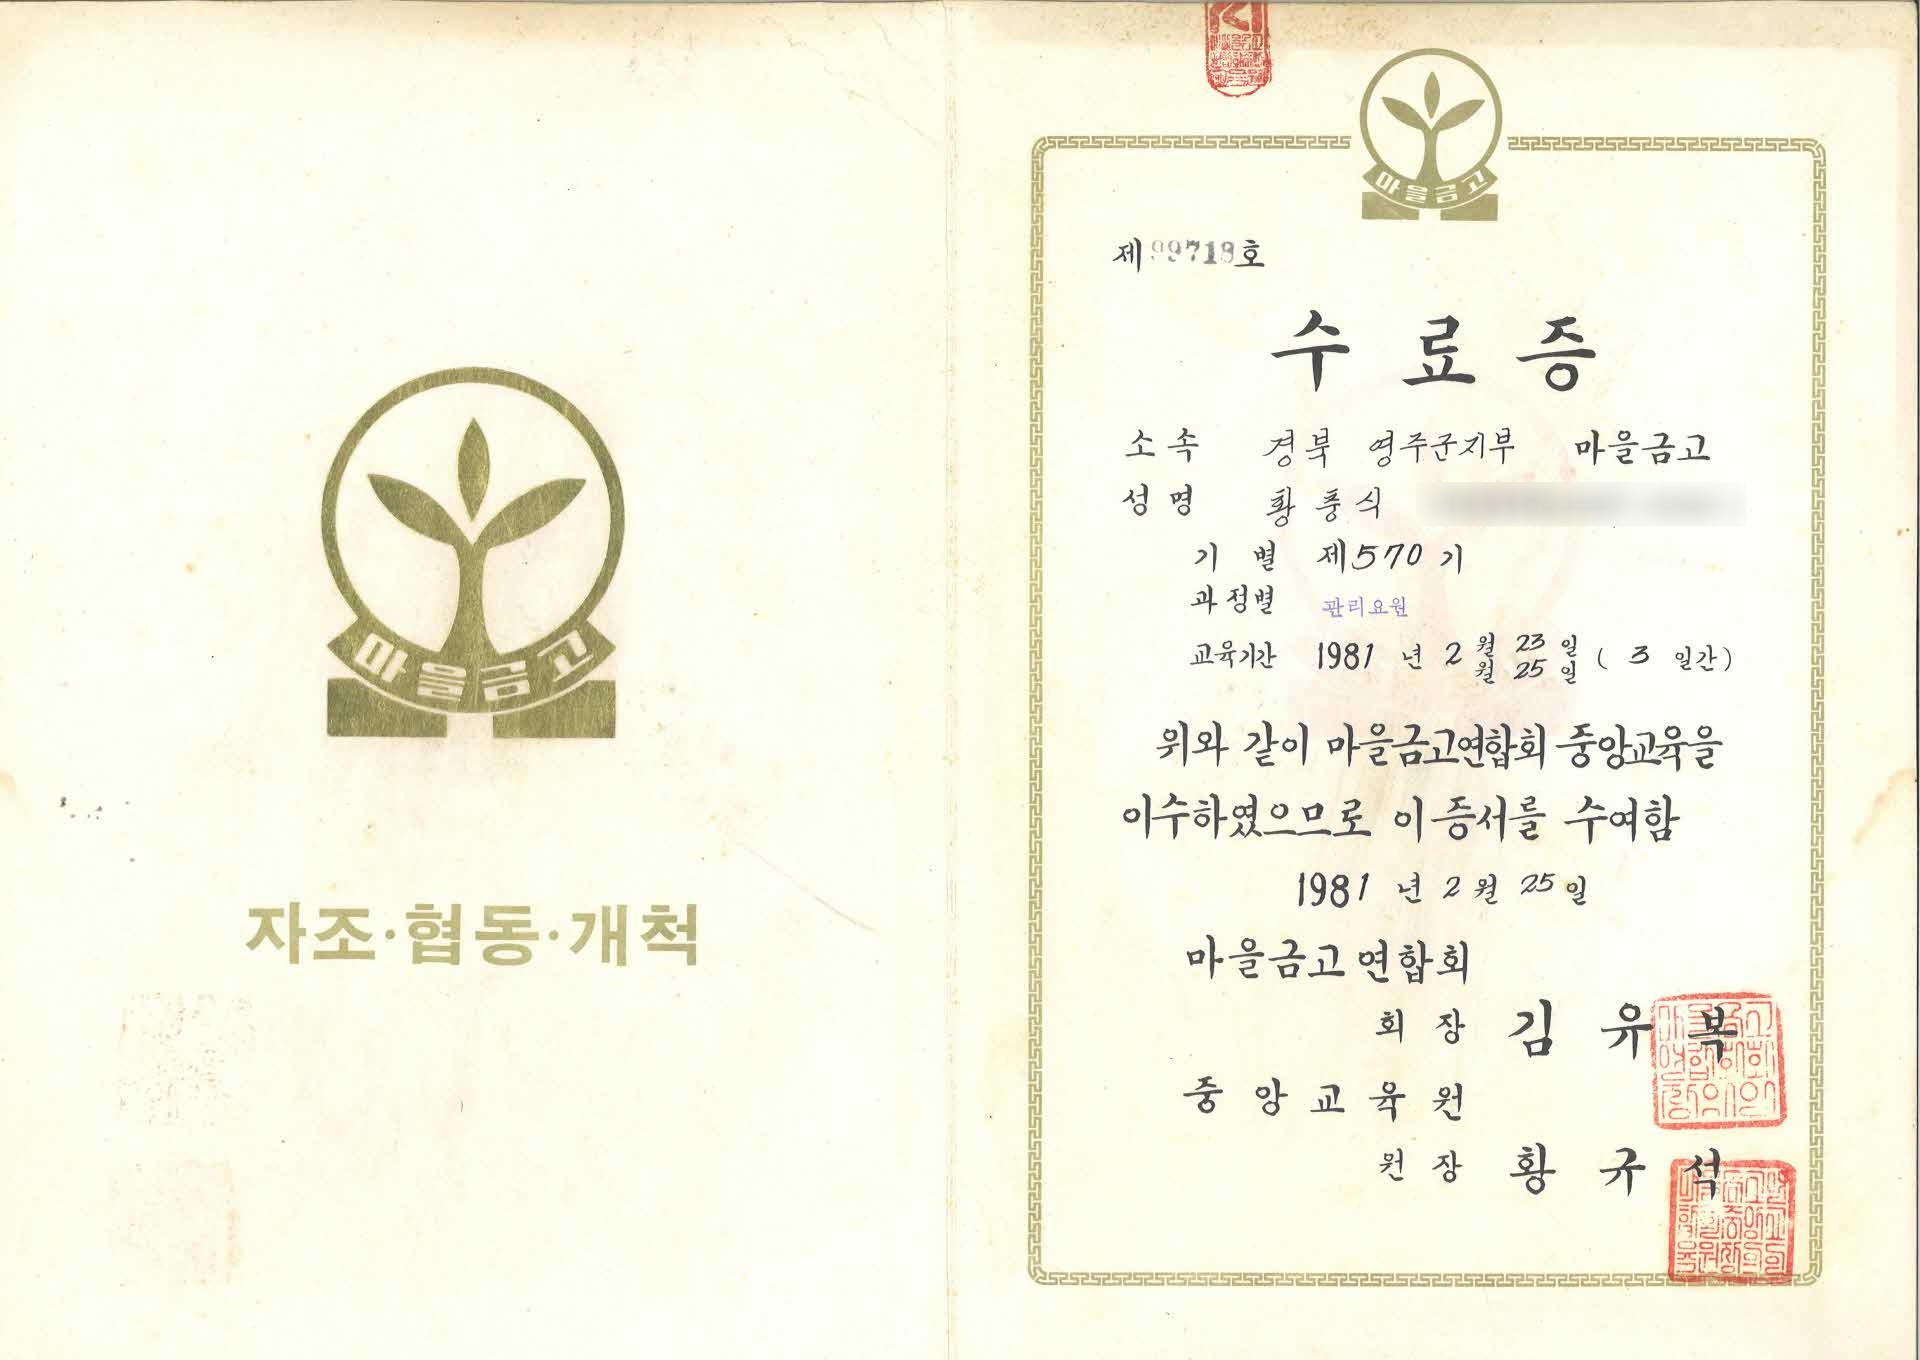 마을금고
자조·협동·개척
마을금고
제99718호
수료증
소속 경북 영주군지부 마을금고
성명 황풍식
기별 제570기
과정별 관리요원
교육기간 1981년 2월 23일
월 25일 (3일간)
위와 같이 마을금고연합회 중앙교육을
이수하였으므로 이 증서를 수여함
1981년 2월 25일
마을금고연합회
회장 김유복
중앙교육원
원장 황규석